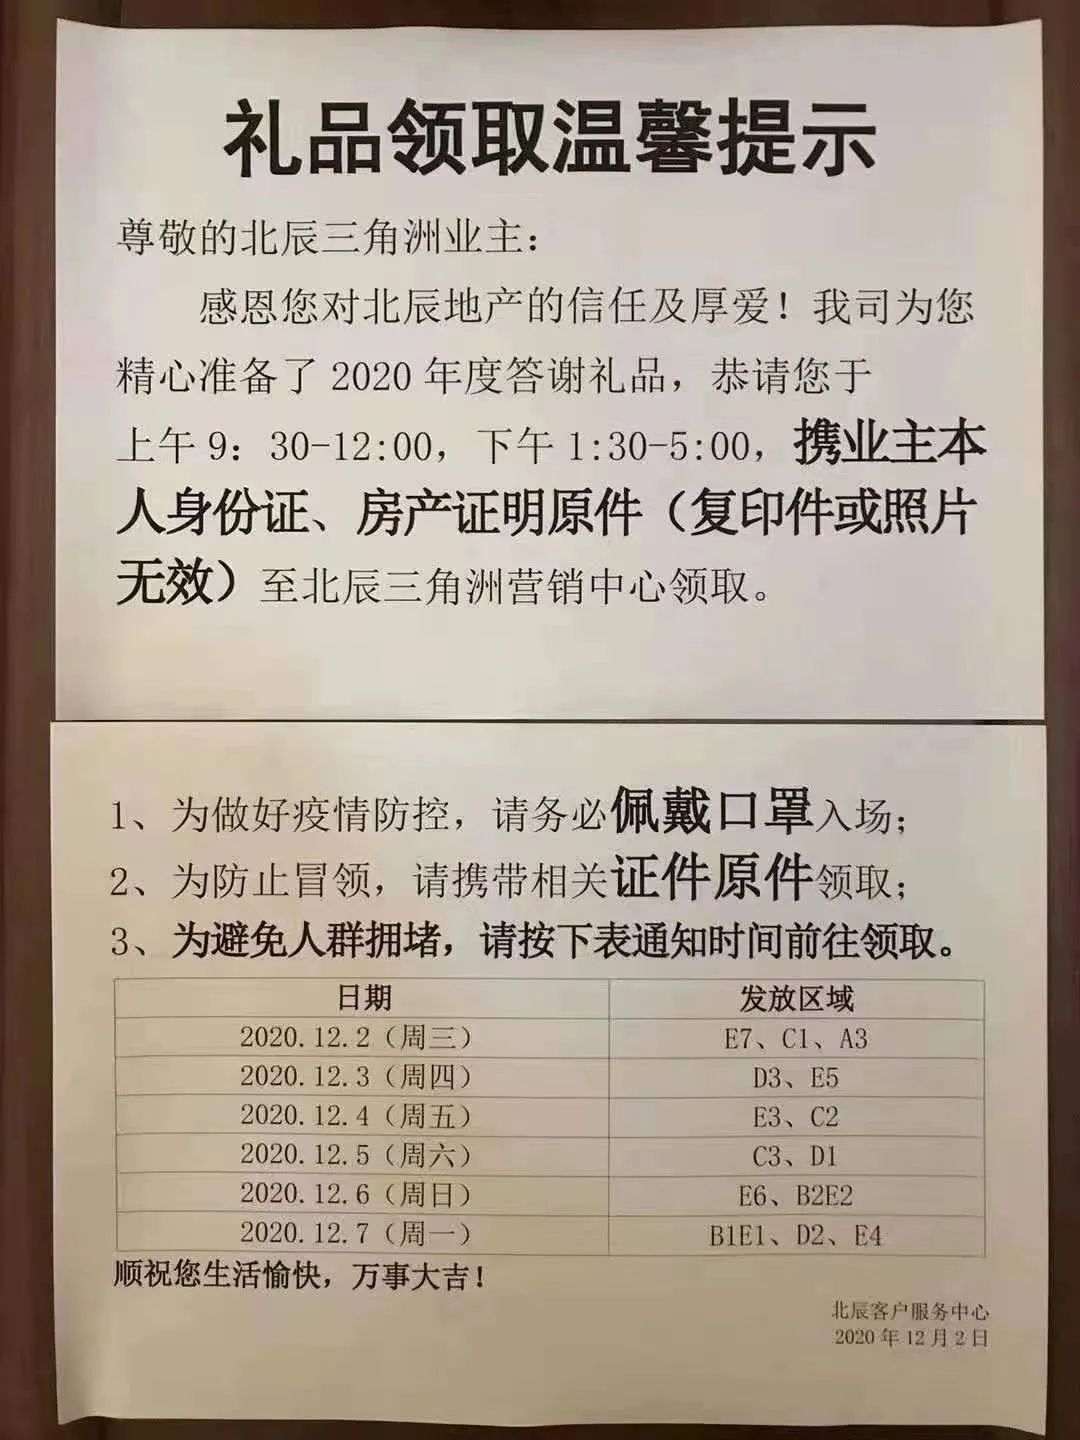 礼品领取温馨提示
尊敬的北辰三角洲业主：
感恩您对北辰地产的信任及厚爱！我司为您
精心准备了 2020 年度答谢礼品，恭请您于
上午 9：30-12:00，下午 1:30-5:00，携业主本
人身份证、房产证明原件（复印件或照片
无效）至北辰三角洲营销中心领取。
1、为做好疫情防控，请务必佩戴口罩入场；
2、为防止冒领，请携带相关证件原件领取；
3、为避免人群拥堵，请按下表通知时间前往领取。
日期 发放区域
2020.12.2（周三） E7、C1、A3
2020.12.3（周四） D3、E5
2020.12.4（周五） E3、C2
2020.12.5（周六） C3、D1
2020.12.6（周日） E6、B2E2
2020.12.7（周一） B1E1、D2、E4
顺祝您生活愉快，万事大吉！
北辰客户服务中心
2020 年 12 月 2 日